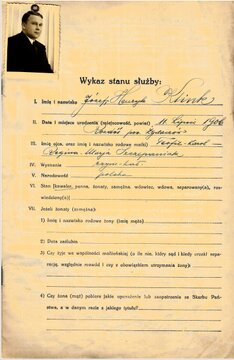 Wykaz stanu służby:
I. Imię i nazwisko Józef Henryk Klink
II. Data i miejsce urodzenia (miejscowość, powiat) 11 lipiec 1906
pow.
III. Imię ojca, oraz imię i nazwisko rodowe matki) Teofil-Karol –
Regina-Maria Szczepaniak
IV. Wyznanie rzym.-kat.
V. Narodowość polska
VI. Stan (kawaler, panna, żonaty, zamężna, wdowiec, wdowa, nieparowany(a), roz-
wiedziony(a)
VII. Jeżeli żonaty (zamężna)
1) Imię i nazwisko rodowe żony (imię męża)
2) Data zaślubin
3) Czy żyje we wspólności małżeńskiej (a ile nie, który sąd i kiedy orzekł sepa-
rację, względnie rozwód i czy z obowiązkiem utrzymania żony):
4) Czy żona (mąż) pobiera jakie uposażenie lub zaopatrzenie ze Skarbu Pań-
stwa, a w danym razie z jakiego tytułu?